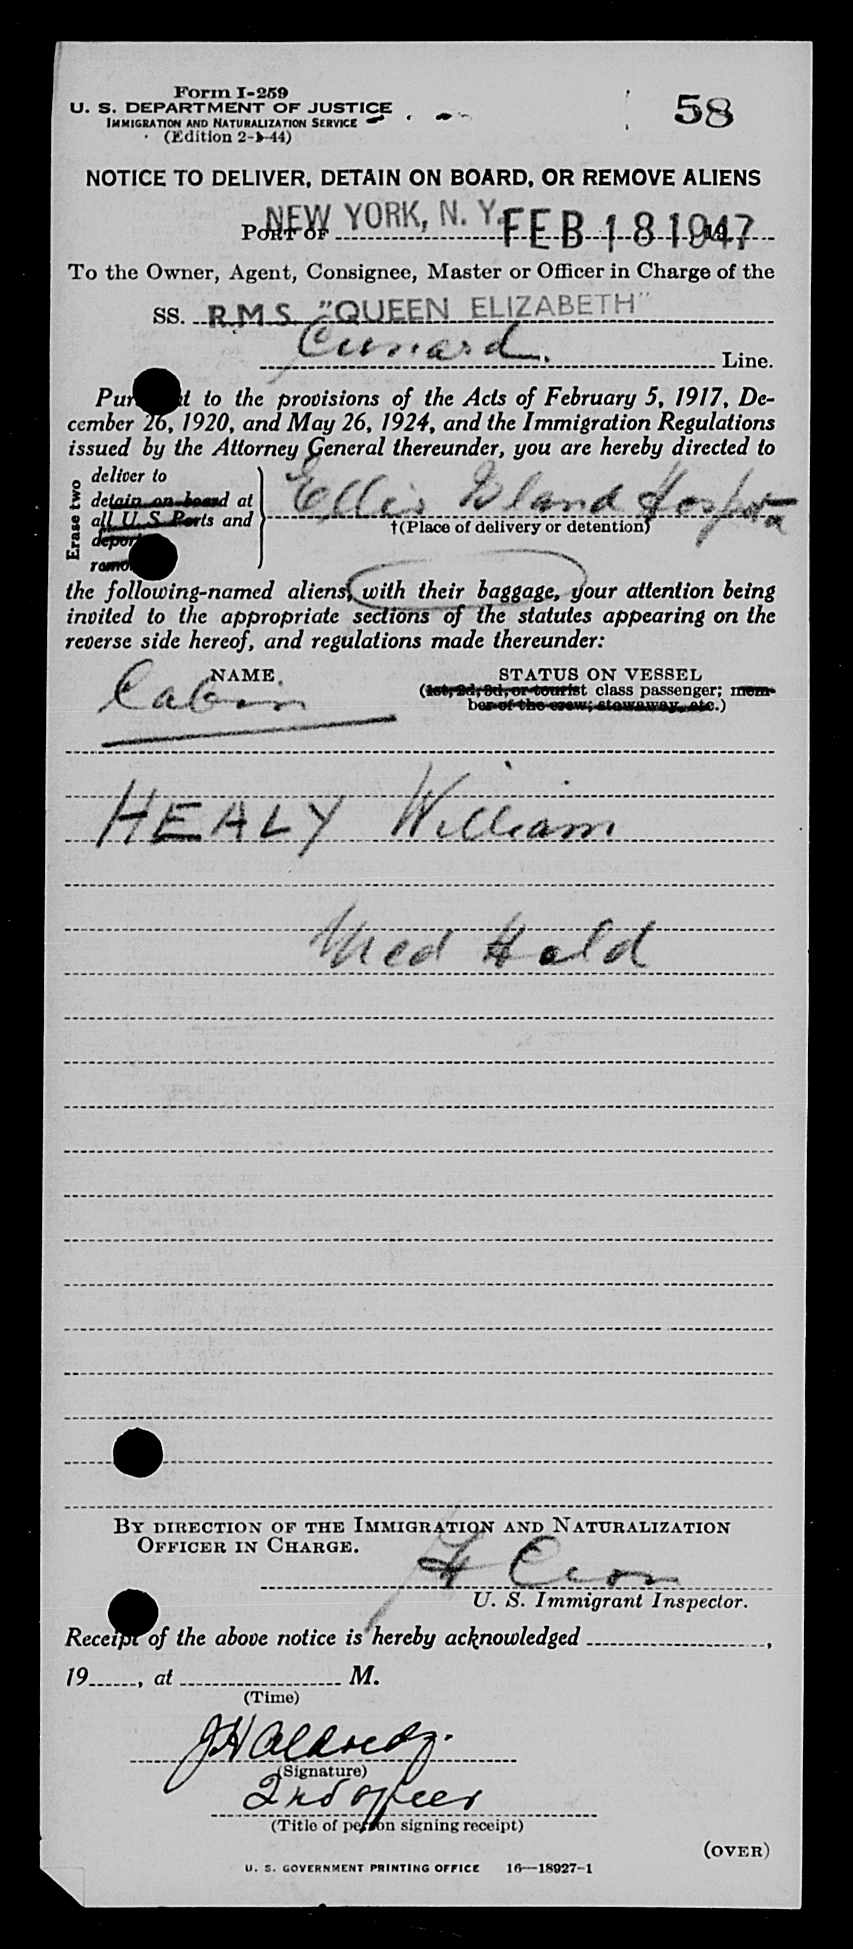 Form I-259
58
U. S. DEPARTMENT OF JUSTICE
IMMIGRATION AND NATURALIZATION SERVICE
(Edition 2-1-44)
NOTICE TO DELIVER, DETAIN ON BOARD, OR REMOVE ALIENS
PORT OF NEW YORK, N. Y. FEB 18 1947
To the Owner, Agent, Consignee, Master or Officer in Charge of the
SS. R.M.S. "QUEEN ELIZABETH"
Cunard. Line.
Pursuant to the provisions of the Acts of February 5, 1917, De-
cember 26, 1920, and May 26, 1924, and the Immigration Regulations
issued by the Attorney General thereunder, you are hereby directed to
Erase two
deliver to
detain on board at
all U. S. Ports and
deport
remove
Ellis Island Hospita
†(Place of delivery or detention)
the following-named aliens, with their baggage, your attention being
invited to the appropriate sections of the statutes appearing on the
reverse side hereof, and regulations made thereunder:
NAME
STATUS ON VESSEL
Cabin
(1st, 2d, 3d, or tourist class passenger; mem-
ber of the crew; stowaway, etc.)
HEALY William
Med Hold
BY DIRECTION OF THE IMMIGRATION AND NATURALIZATION
OFFICER IN CHARGE.
U. S. Immigrant Inspector.
Receipt of the above notice is hereby acknowledged ,
19 , at M.
(Time)
(Signature)
2nd officer
(Title of person signing receipt)
(OVER)
U. S. GOVERNMENT PRINTING OFFICE 16—18927-1